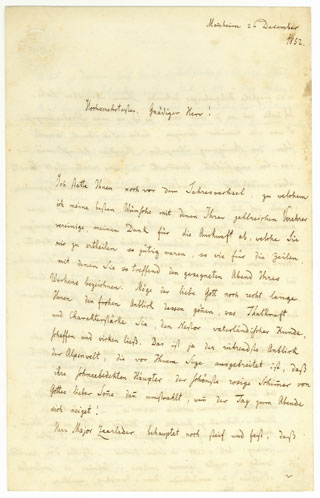 Mannheim 26 December
1852.
Hochverehrtester, Gnädiger Herr!
Ich statte Ihnen noch vor dem Jahreswechsel, zu welchem
ich meine besten Wünsche mit denen Ihrer zahlreichen Verehrer
vereinige, meinen Dank für die Auskunft ab, welche Sie
mir zu ertheilen so gütig waren, so wie für die Zeilen
mit denen Sie so treffend den gesegneten Abend Ihres
Wirkens bezeichnen. Möge der liebe Gott noch recht lange
Ihnen den frohen Anblick dessen gönnen, was Thatkraft
und Charakterstärke Sie, den Nestor vaterländischer Kunde,
schaffen und wirken ließ. Das ist ja der rührendste Anblick
der Alpenwelt, die vor Ihrem Auge ausgebreitet ist, daß
ihre schneebedeckten Häupter der schönste rosige Schimmer von
Gottes lieber Sonne dann umstrahlt, wenn der Tag zum Abende
sich neiget!
Herr Major Zeerleder behauptet noch steif und fest, daß